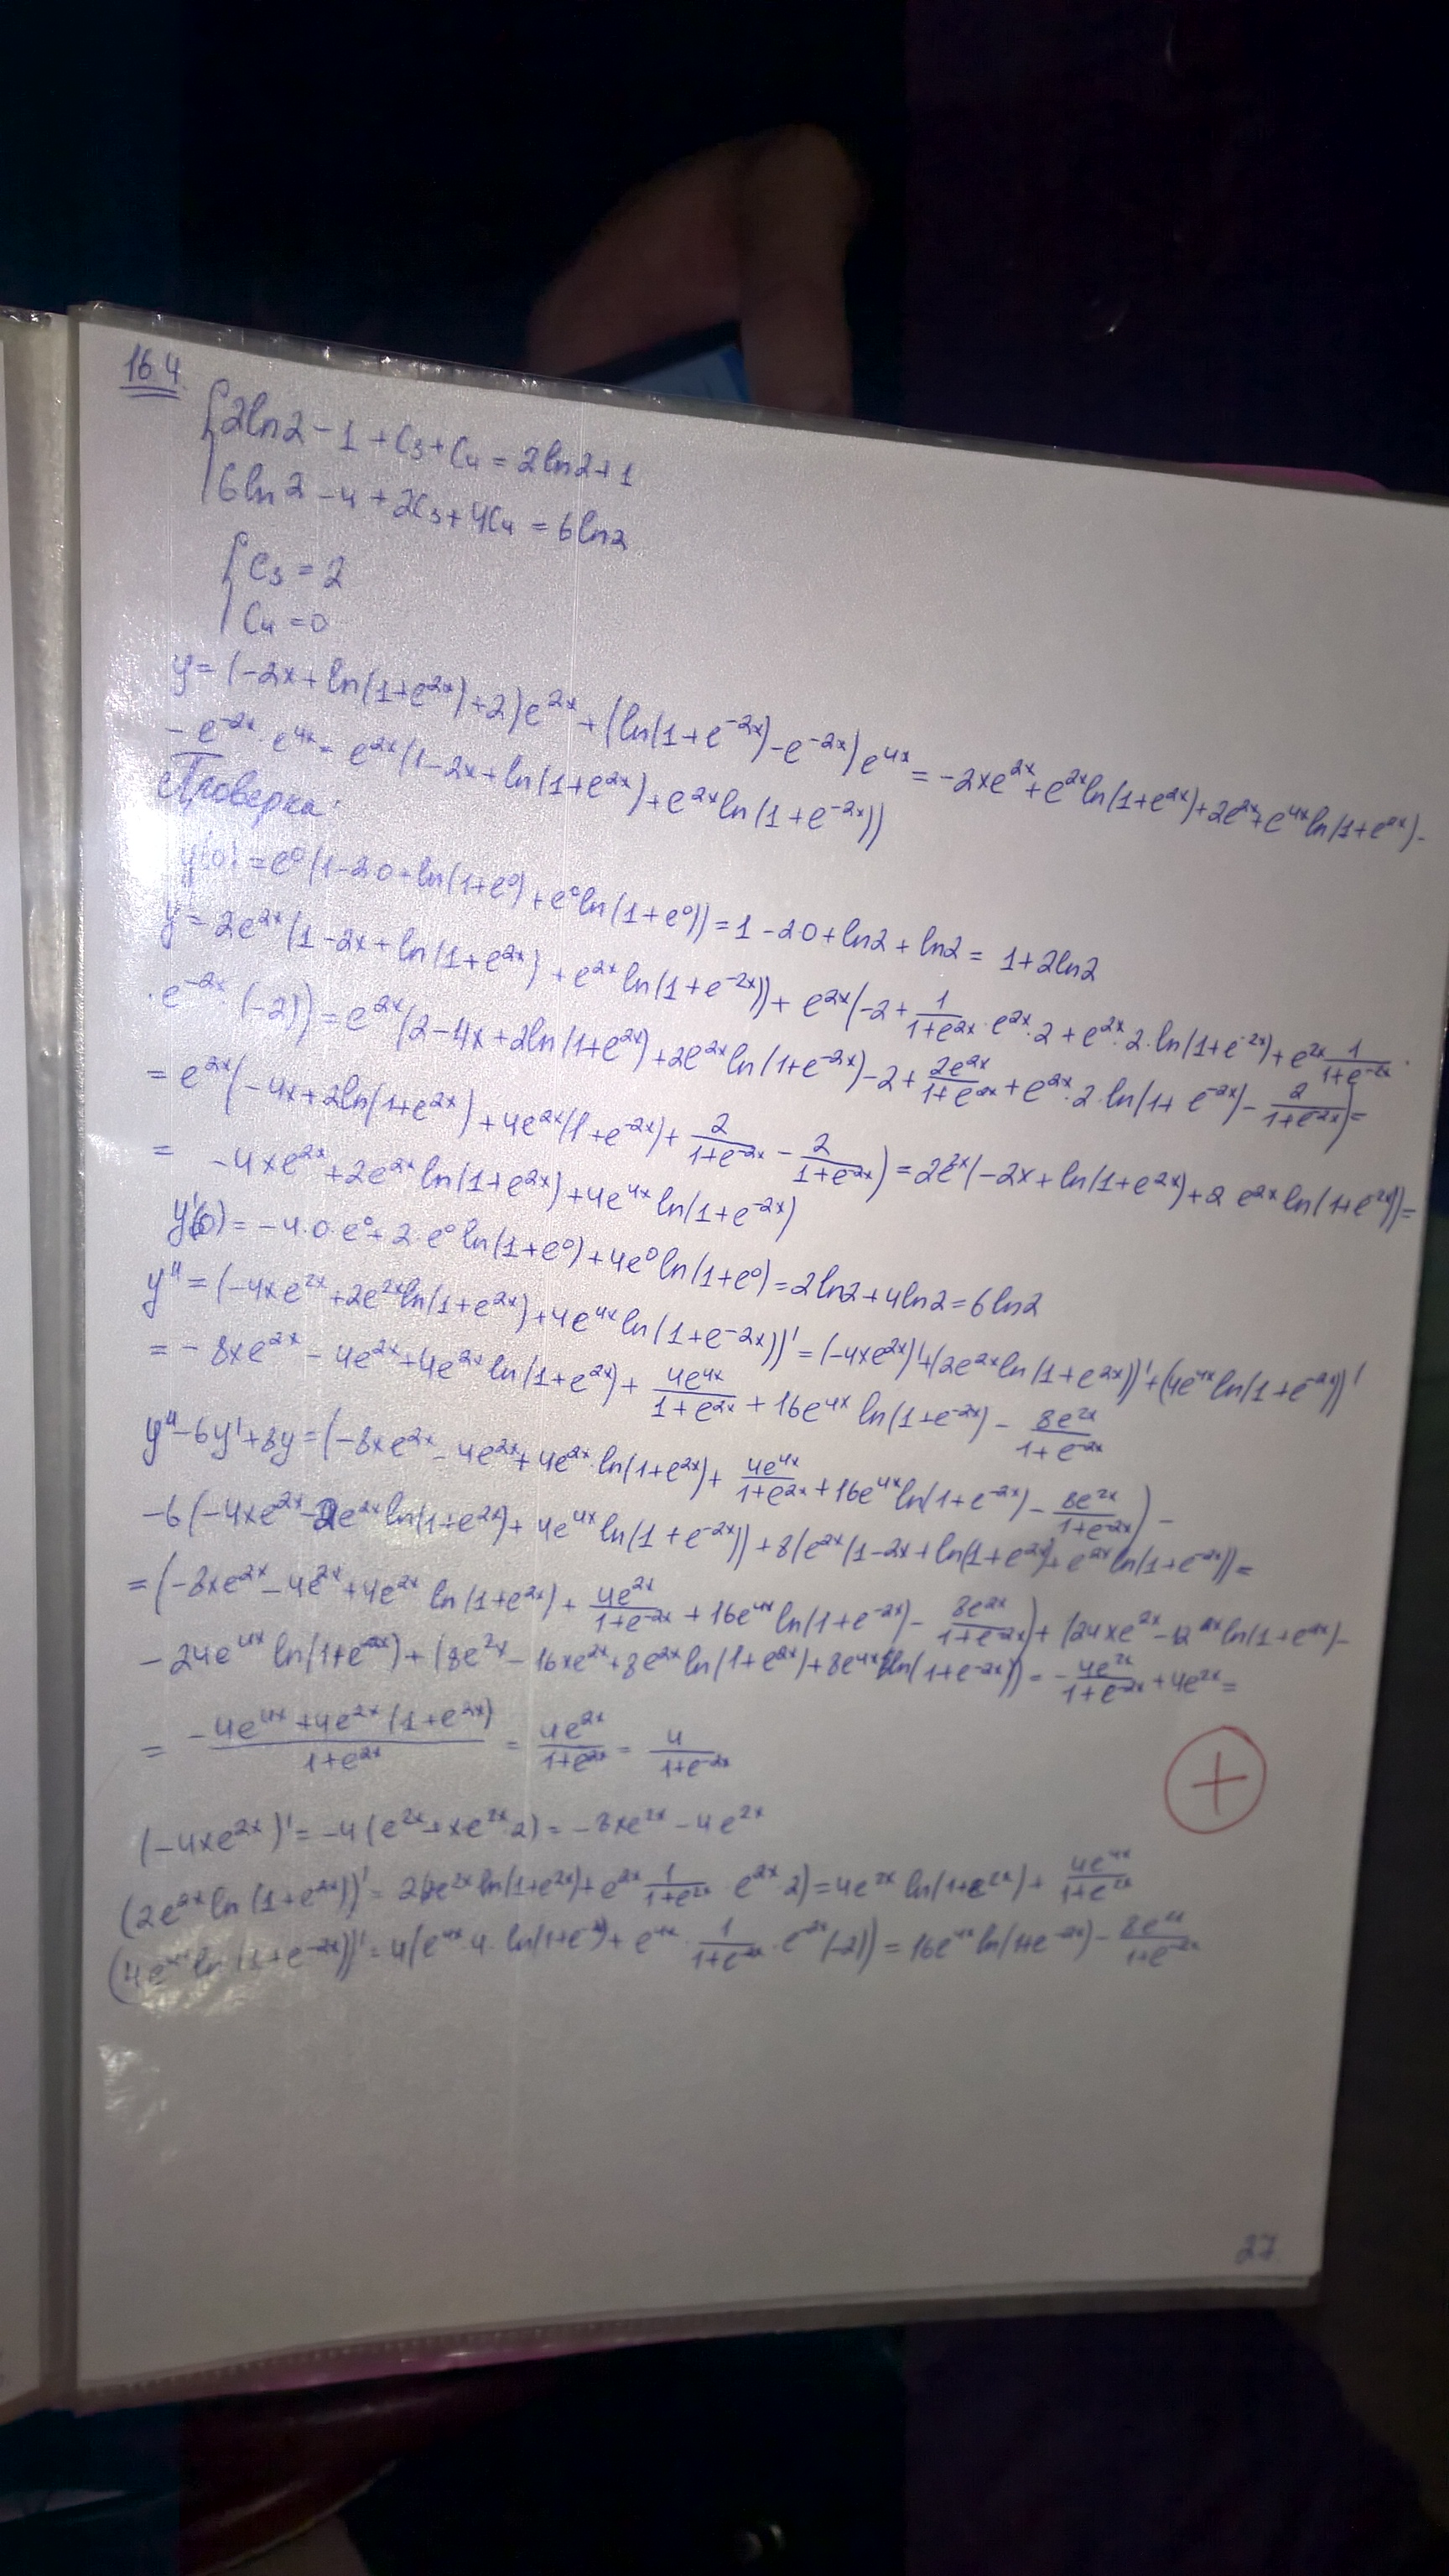 16.4.
{2ln2 - 1 + C₃ + C₄ = 2ln2 + 1
{6ln2 - 4 + 2C₃ + 4C₄ = 6ln2
{C₃ = 2
{C₄ = 0
y = (-2x + ln(1+e^{2x}) + 2)e^{2x} + (ln(1+e^{-2x}) - e^{-2x})e^{4x} = -2xe^{2x} + e^{2x}ln(1+e^{2x}) + 2e^{2x} + e^{4x}ln(1+e^{-2x}) -
- e^{-2x}·e^{4x} = e^{2x}(1 - 2x + ln(1+e^{2x}) + e^{2x}ln(1+e^{-2x}))
Проверка:
y(0) = e⁰(1 - 2·0 + ln(1+e⁰) + e⁰ln(1+e⁰)) = 1 - 2·0 + ln2 + ln2 = 1 + 2ln2
y' = 2e^{2x}(1 - 2x + ln(1+e^{2x}) + e^{2x}ln(1+e^{-2x})) + e^{2x}(-2 + 1/(1+e^{2x})·e^{2x}·2 + e^{2x}·2·ln(1+e^{-2x}) + e^{2x} 1/(1+e^{-2x})·
·e^{-2x}·(-2)) = e^{2x}(2 - 4x + 2ln(1+e^{2x}) + 2e^{2x}ln(1+e^{-2x}) - 2 + 2e^{2x}/(1+e^{2x}) + e^{2x}·2·ln(1+e^{-2x}) - 2/(1+e^{-2x})) =
= e^{2x}(-4x + 2ln(1+e^{2x}) + 4e^{2x}(1+e^{-2x}) + 2/(1+e^{-2x}) - 2/(1+e^{-2x})) = 2e^{2x}(-2x + ln(1+e^{2x}) + 2e^{2x}ln(1+e^{-2x})) =
= -4xe^{2x} + 2e^{2x}ln(1+e^{2x}) + 4e^{4x}ln(1+e^{-2x})
y'(0) = -4·0·e⁰ + 2·e⁰ln(1+e⁰) + 4e⁰ln(1+e⁰) = 2ln2 + 4ln2 = 6ln2
y'' = (-4xe^{2x} + 2e^{2x}ln(1+e^{2x}) + 4e^{4x}ln(1+e^{-2x}))' = (-4xe^{2x})' + (2e^{2x}ln(1+e^{2x}))' + (4e^{4x}ln(1+e^{-2x}))'
= -8xe^{2x} - 4e^{2x} + 4e^{2x}ln(1+e^{2x}) + 4e^{4x}/(1+e^{2x}) + 16e^{4x}ln(1+e^{-2x}) - 8e^{2x}/(1+e^{-2x})
y'' - 6y' + 8y = (-8xe^{2x} - 4e^{2x} + 4e^{2x}·ln(1+e^{2x}) + 4e^{4x}/(1+e^{2x}) + 16e^{4x}ln(1+e^{-2x}) - 8e^{2x}/(1+e^{-2x})) -
-6(-4xe^{2x} - 2e^{2x}ln(1+e^{2x}) + 4e^{4x}ln(1+e^{-2x})) + 8(e^{2x}(1 - 2x + ln(1+e^{2x}) + e^{2x}ln(1+e^{-2x})) =
= (-8xe^{2x} - 4e^{2x} + 4e^{2x}ln(1+e^{2x}) + 4e^{2x}/(1+e^{-2x}) + 16e^{4x}ln(1+e^{-2x}) - 8e^{2x}/(1+e^{-2x})) + (24xe^{2x} - 12^{2x}ln(1+e^{2x}) -
- 24e^{4x}ln(1+e^{-2x}) + (8e^{2x} - 16xe^{2x} + 8e^{2x}ln(1+e^{2x}) + 8e^{4x}ln(1+e^{-2x})) = -4e^{2x}/(1+e^{-2x}) + 4e^{2x} =
= (-4e^{4x} + 4e^{2x}(1+e^{2x}))/(1+e^{2x}) = 4e^{2x}/(1+e^{2x}) = 4/(1+e^{-2x})
+
(-4xe^{2x})' = -4(e^{2x} + xe^{2x}·2) = -8xe^{2x} - 4e^{2x}
(2e^{2x}ln(1+e^{2x}))' = 2(2e^{2x}ln(1+e^{2x}) + e^{2x} 1/(1+e^{2x}) e^{2x}·2) = 4e^{2x}ln(1+e^{2x}) + 4e^{4x}/(1+e^{2x})
(4e^{4x}ln(1+e^{-2x}))' = 4(e^{4x}·4·ln(1+e^{-2x}) + e^{4x}·1/(1+e^{-2x})·e^{-2x}(-2)) = 16e^{4x}ln(1+e^{-2x}) - 8e^{2x}/(1+e^{-2x})
27